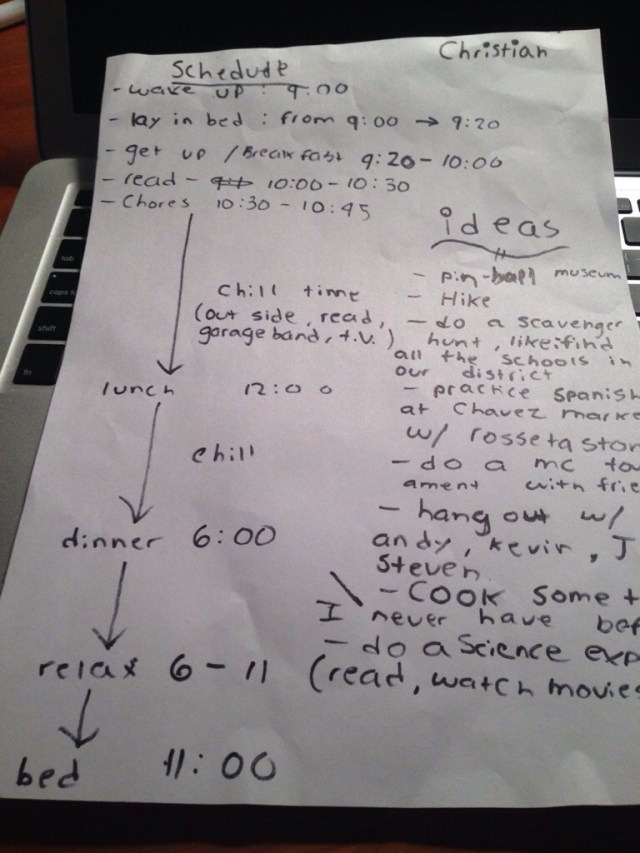 Christian
Schedule
- wake up : 9:00
- lay in bed : from 9:00 → 9:20
- get up / Breakfast 9:20 - 10:00
- read - 10:00 - 10:30
- Chores 10:30 - 10:45
Chill time
(out side, read,
garage band, t.v.)
lunch 12:00
chill
dinner 6:00
relax 6 - 11 (read, watch movies
bed 11:00
ideas
- pin-ball museum
- Hike
- do a scavenger
hunt, like:find
all the schools in
our district
- practice spanish
at Chavez marke
w/ rosseta ston
- do a mc tou
ament with frie
- hang out w/
andy, kevin, J
Steven
- COOK some t
I never have bef
- do a science exp
tab
caps l
shift
fn